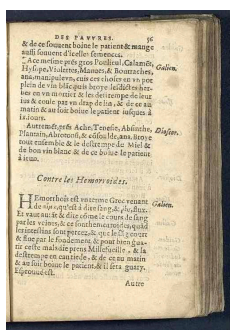 DES PAVVRES. 56
& de ce souuent boiue le patient & mange
aussi souuent d'icelle semence.
A ce mesme prés gros Poulieul, Calamét,
Hysope, Violettes, Mauues, & Bourraches,
ana, manipulum, cuis ces choses en vn pot
plein de vin blãc, puis broye lesdictes her-
bes en vn mortier & les destrempe de leur
ius & coule par vn drap de lin, & de ce au
matin & au soir boiue le patient iusques à
ix. iours.
Galien.
Autremẽt, prés Ache, Tenesie, Absinthe,
Plantain, Abrotons, & cõsoulde, ana. Broye
tout ensemble & le destrempe du Miel &
de bon vin blanc & de ce boiue le patient
à ieun.
Dioscor.
Contre les Hemorroides.
HEmorrhois est vn terme Grec venant
de qu'est à dire sang, & flux.
Et vaut autãt à dire cõme le cours de sang
par les veines, & ce sont hemorroides, quãd
les intestins sont percez, & que le sãg court
& flue par le fondement & pour bien gua-
rir ceste maladie prens Millefueille, & la
destrempe en eau tiede, & de ce au matin
& au soir boiue le patient & il sera guary.
Esprouué est.
Galien.
Autre